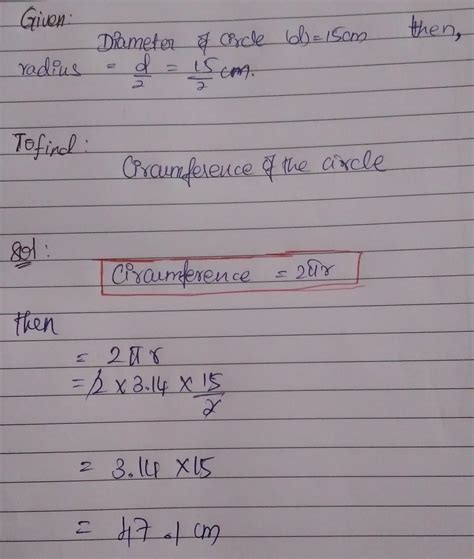 Given:
Diameter of circle (d) = 15cm then,
radius = d/2 = 15/2 cm.
To find:
Circumference of the circle
Sol:
Circumference = 2πr
then
= 2πr
= 2 × 3.14 × 15/2
= 3.14 × 15
= 47.1 cm